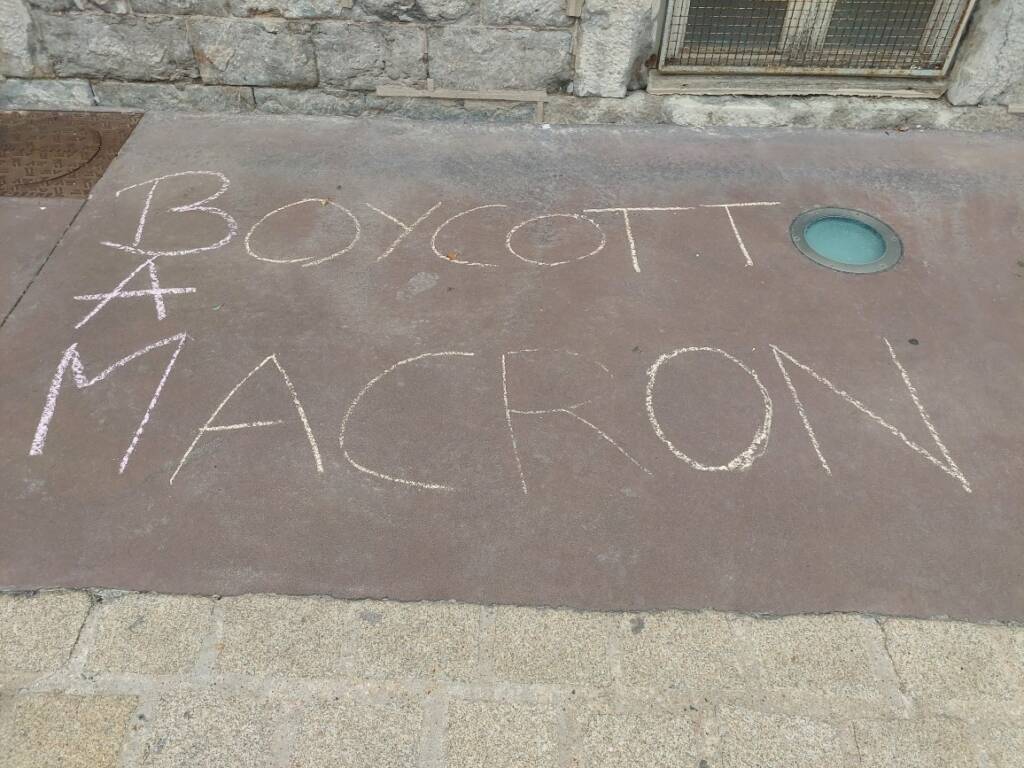 BOYCOTT
A
MACRON